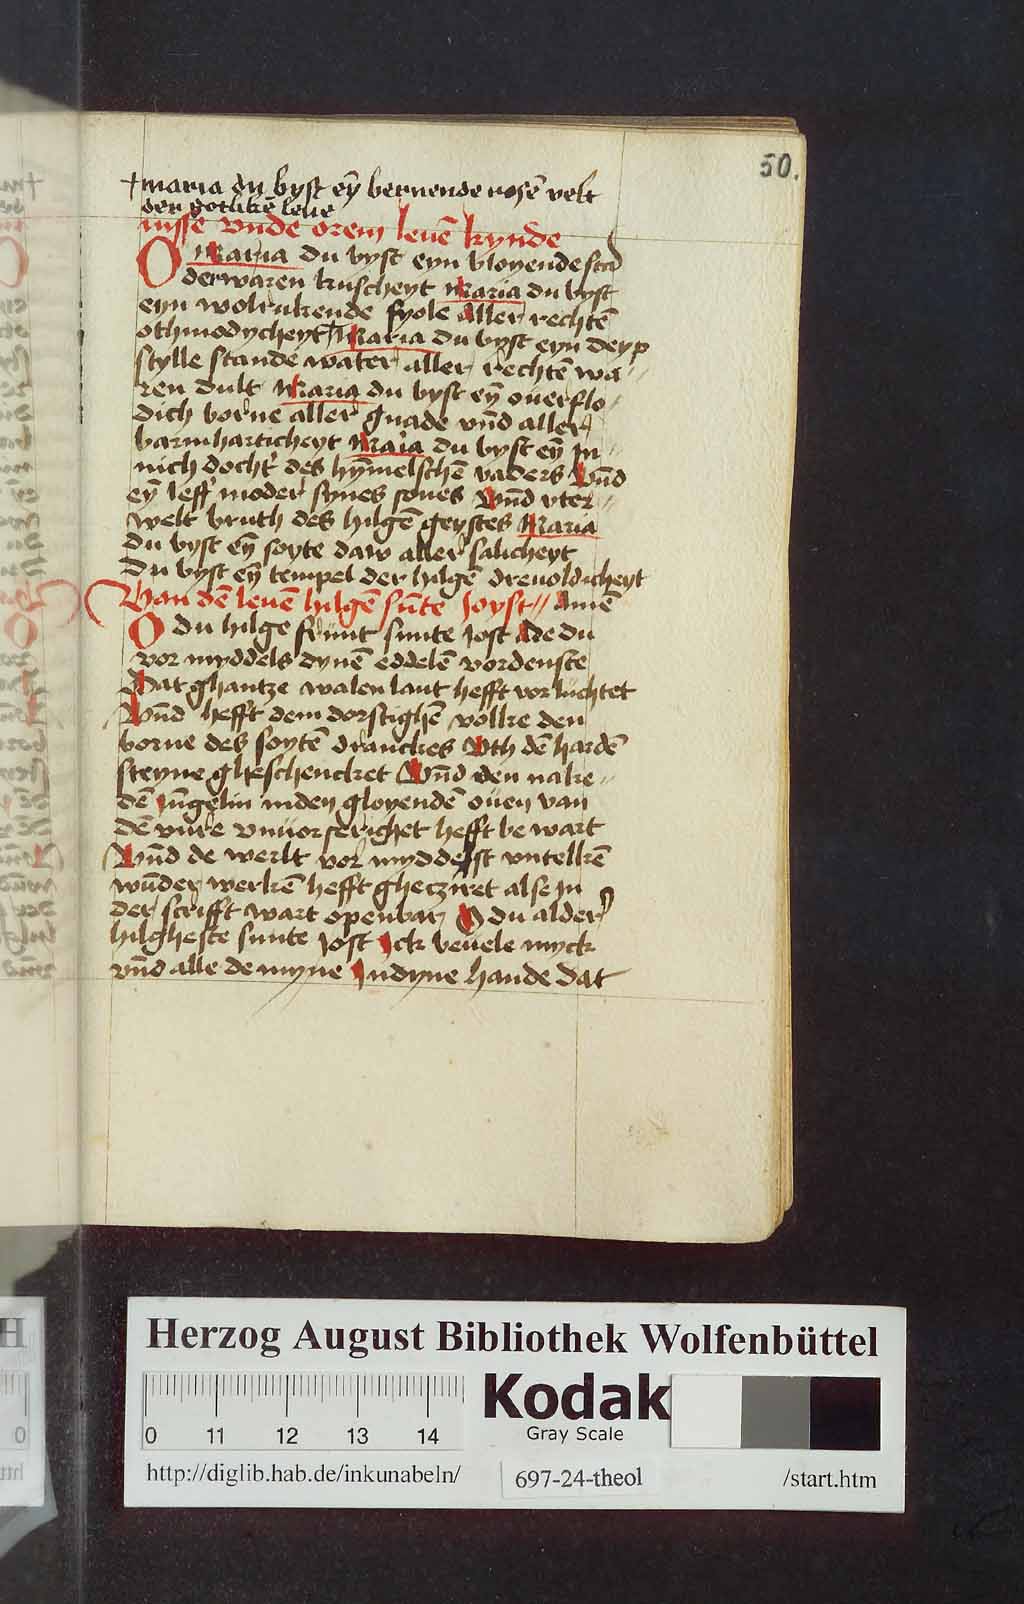 50.
+ maria du byst eȳ bernende rosē velt
der gotlikē leue
nisse vnde orem leuē kynde
O Maria du byst eyn bloyende stad
der waren kuscheyt Maria du byst
eyn wolrukende fyole aller rechtē
othmodycheyt + Maria du byst eyn deyp
stylle stande water aller rechtē wa-
ren dult Maria du byst eȳ ouerflo-
dich borne aller gnade vn̄d aller
barmharticheyt Maria du byst eȳ In-
nich docht' des hȳmelschē vaders Vn̄d
eȳ leff moder synes sones Vn̄d vter-
welt bruth des hilgē geystes Maria
du byst eȳ soyte daw aller salicheyt
Du byst eȳ tempel der hilgē dreuoldicheyt
Van dē leuē hilgē sūte Joyst // Amē
O du hilge frünt sunte Jost de du
vor myddels dynē eddelē vordenste
Dat ghantze walen lant hefft vorlüchtet
Vn̄d hefft dem dorstighē volke den
borne des soytē dranckes Vth dē hardē
steyne gheschencket Vn̄d den nake-
dē iūgelin inden gloyendē ouen van
dē vure vnuorserichet hefft bewart
Vn̄d de werlt vor myddelst vntelkē
wūder werkē hefft gheczyret alse in
der scrifft wart openbar O du alder
hilgheste sunte Jost Ick beuele myck
vn̄d alle de myne In dyne hande dat
Herzog August Bibliothek Wolfenbüttel
Kodak
Gray Scale
0 11 12 13 14
http://diglib.hab.de/inkunabeln/
697-24-theol
/start.htm